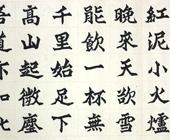 紅泥小火爐
晚來天欲雪
能飲一杯無
千里始足下
高山起微塵
吾道亦如此